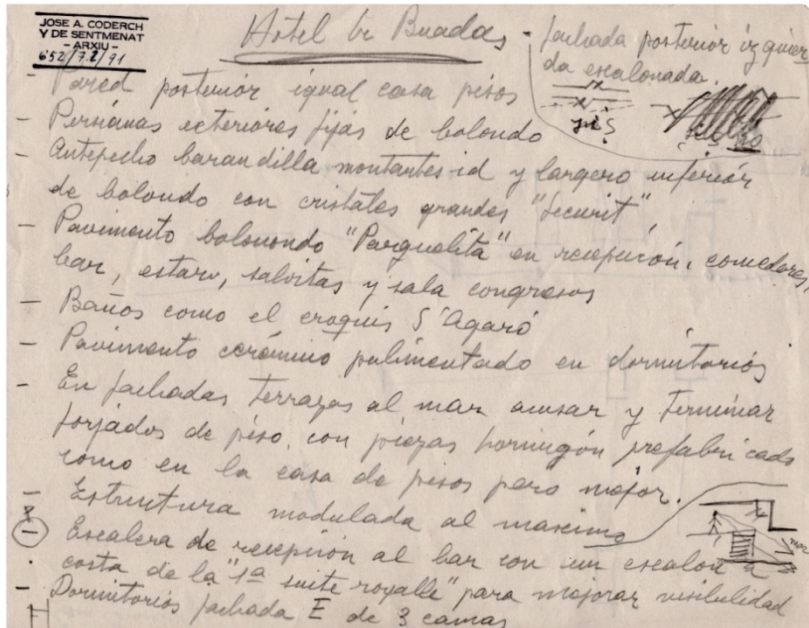 JOSE A. CODERCH
Y DE SENTMENAT
- ARXIU -
652/72/91
Hotel de Buadas - fachada posterior izquier
da escalonada.
- Pared posterior igual casa pisos
- Persianas exteriores fijas de bolondo
- Antepecho barandilla montantes id y largero inferior
de bolondo con cristales grandes "Securit"
- Pavimento bolonondo "Parquelita" en recepción, comedores,
bar, estar, salitas y sala congresos
- Baños como el croquis S'Agaró
- Pavimento cerámico pulimentado en dormitorios
- En fachadas terrazas al mar acusar y terminar
forjados de piso, con piezas hormigón prefabricado
como en la casa de pisos pero mejor.
- Estructura modulada al maximo
- Escalera de recepción al bar con un escalon a
costa de la "1ª suite royalle" para mejorar visibilidad
- Dormitorios fachada E de 3 camas